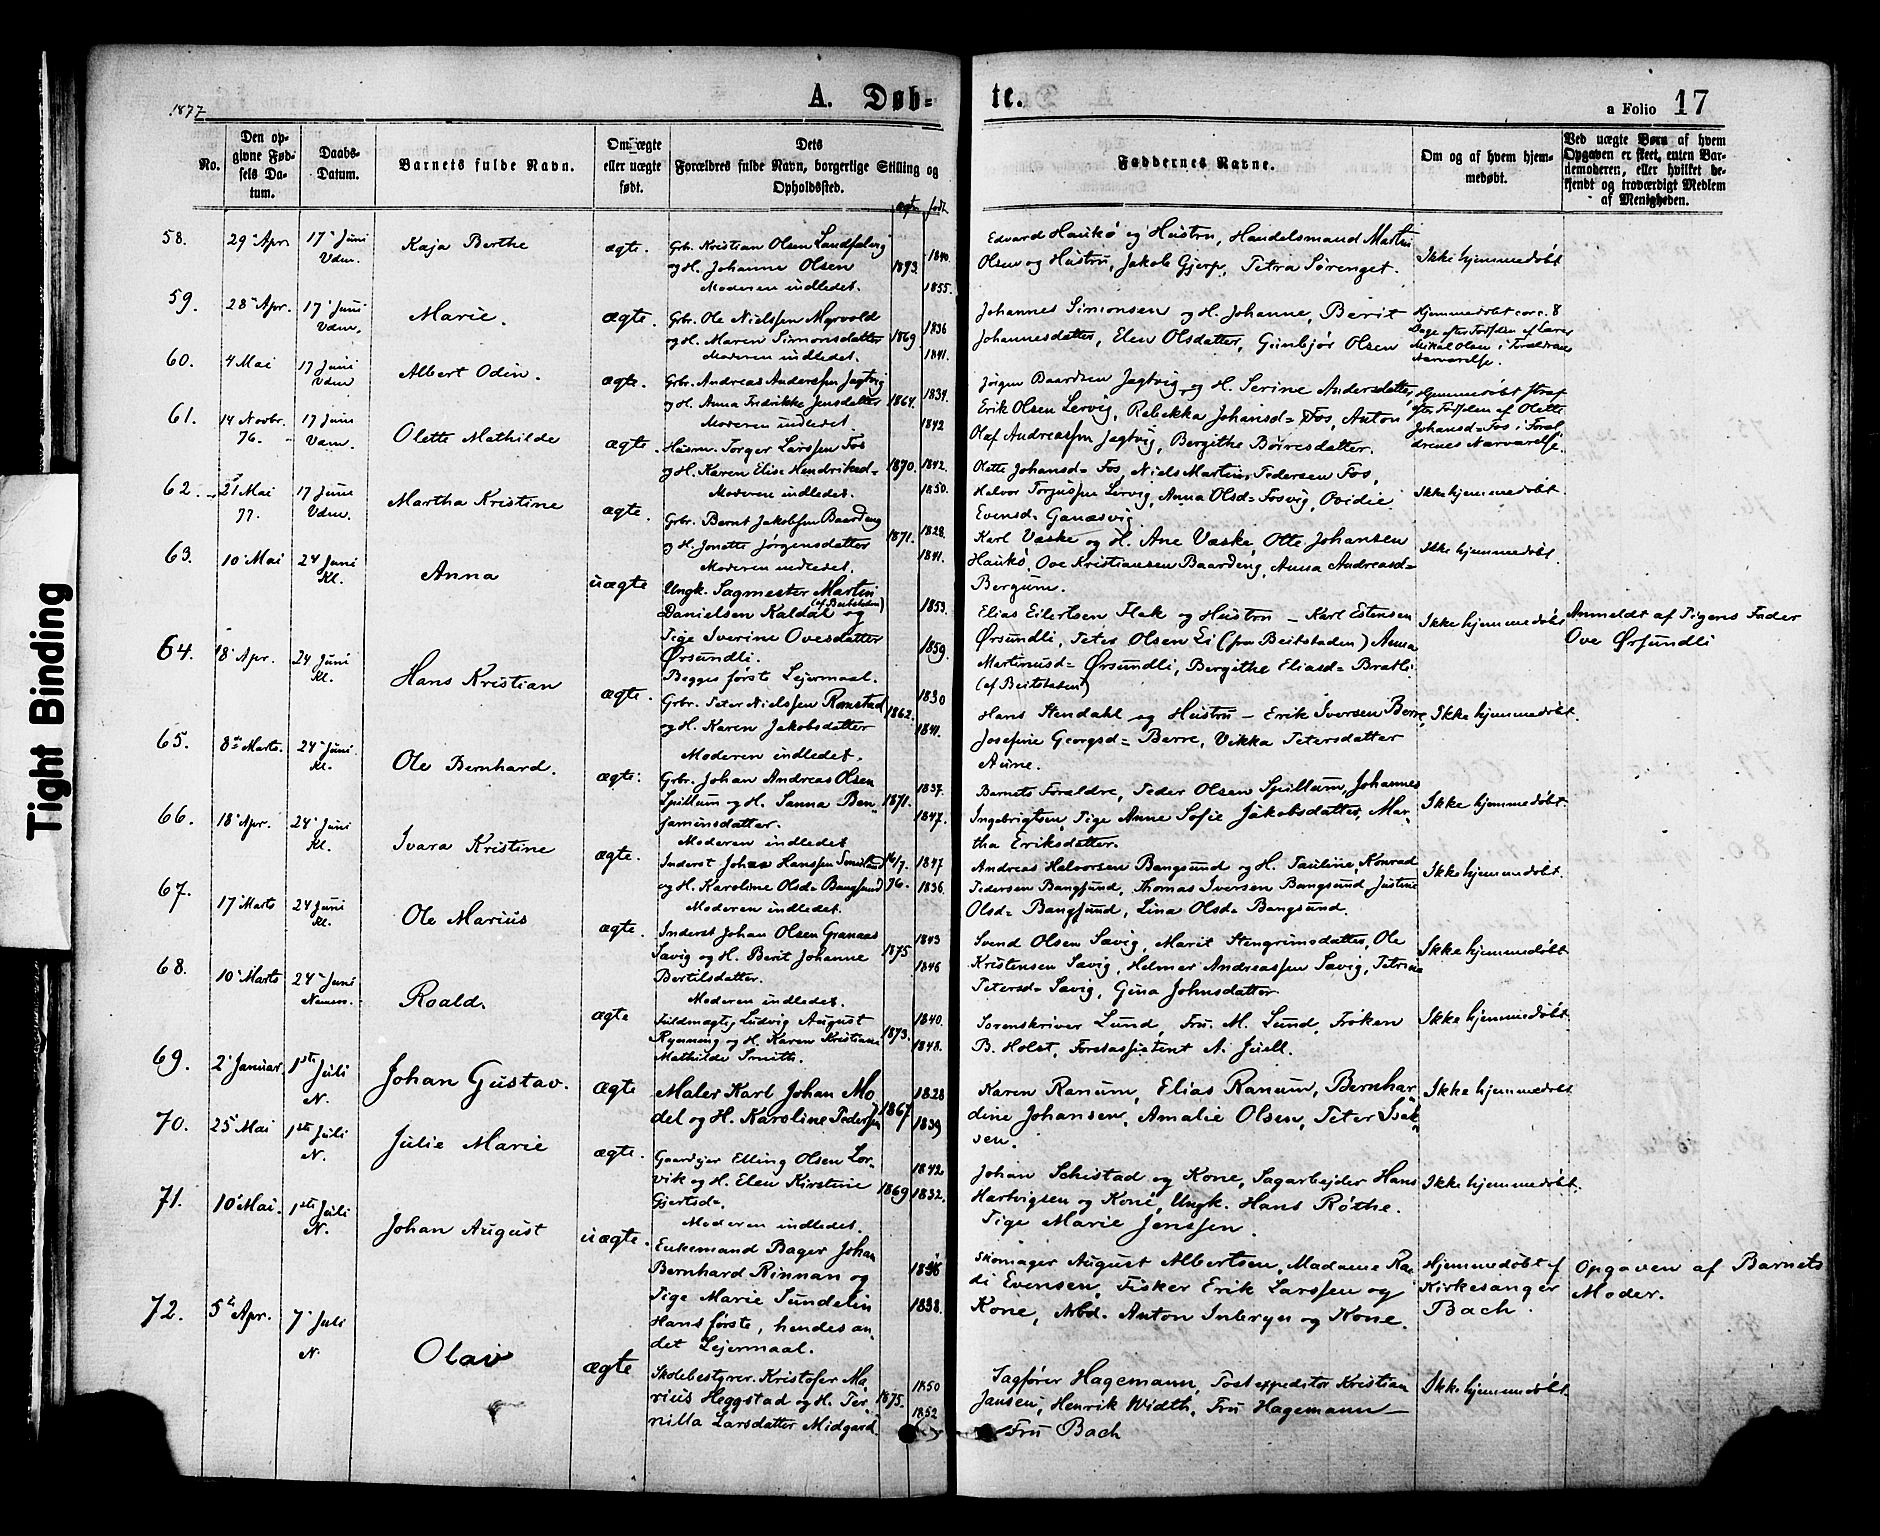 1877
A. Døb-
te.
a Folio 17
No.
Den op-
givne Fød-
sels Da-
tum.
Daabs-
Datum.
Barnets fulde Navn.
Om ægte
eller uægte
født.
Dets
Forældres fulde Navn, borgerlige Stilling og
Opholdssted.
Faddernes Navne.
Om og af hvem hjem-
medøbt.
Ved uægte Børn af hvem
Opgaven er skeet, enten Bar-
nemoderen, eller hvilket be-
kjendt og troværdigt Medlem
af Menigheden.
58. 29 Apr. 17 Juni Vdm. Kaja Berthe ægte.
Grb. Kristian Olsen
og H. Johanne Olsen 1873. 1840.
Moderen indledet. 1855.
Edvard Haukø og Hustru, Handelsmand Martin
Olsen og Hustru, Jakob Gjerp, Petra Sørenget.
Ikke hjemmedøbt
59. 28 Apr. 17 Juni Vdm. Marie. ægte.
Grb. Ole Nielssen Myrvold 1836
og H. Maren Simonsdatter 1869.
Moderen indledet. 1841.
Johannes Simonsen og H. Johanne, Berit
Johannesdatter, Elen Olsdatter, Gunbjør Olsen
Hjemmedøbt circ. 8
Dage efter Fødslen af Lærer
Mikal Olsen i Forældrenes
Nærværelse.
60. 4 Mai 17 Juni Vdm Albert Odin. ægte.
Grb. Andreas Anderssen Jagtvig 1834.
og H. Anna Fredrikke Jensdatter 1864.
Moderen indledet. 1842
Jørgen Baardsen Jagtvig og H. Serine Andersdatter,
Erik Olsen Lervig, Rebekka Johansd= Fos, Anton
Olaf Andreassen Jagtvig, Bergithe Børresdatter.
Hjemmedøbt straf
efter Fødslen af Olette
Johansd= Fos i Foræl
drenes Nærværelse.
61. 14 Novbr. 76. 17 Juni Vdm. Olette Mathilde ægte.
Husm. Torger Larssen Fos
og H. Karen Elise Hendriksd= 1870. 1842.
Moderen indledet. 1850.
Olette Johansd= Fos, Niels Martin Pedersen Fos,
Helvor Torjussen Lervig, Anna Olsd= Fosvig, Ovidie
Evensd= Ganæsvig
Ikke hjemmedøbt
62. 21 Mai 77. 17 Juni Vdm. Martha Kristine ægte.
Grb. Bernt Jakobsen Baardeng 1828.
og H. Jonette Jørgensdatter 1871. 1841.
Moderen indledet.
Karl Væske og H. Ane Væske, Otte Johansen
Haukø, Ove Kristiansen Baardeng, Anna Andreasd=
Bergum.
Ikke hjemmedøbt
63. 10 Mai 24 Juni Kl. Anna uægte
Ungk. Sagmester Martin
Danielsen Kaldal (af Beitstaden) og 1853.
Pige Iverine Ovesdatter
Ørsundli. 1859.
Begges første Lejermaal.
Elias Eilertsen Flak og Hustru — Karl Estensen
Ørsundli, Peter Olsen Li (fra Beitstaden) Anna
Martinusd= Ørsundli, Bergithe Eliasd= Bratli
(af Beitstaden)
Ikke hjemmedøbt
Anmeldt af Pigens Fader
Ove Ørsundli
64. 18 Apr. 24 Juni Kl. Hans Kristian ægte.
Grbr. Peter Nielssen Ramstad 1862. 1830
og H. Karen Jakobsdatter 1841.
Moderen indledet.
Hans Stendahl og Hustru — Erik Iversen Berre,
Josefine Georgsd= Berre, Vikka Petersdatter
Aune.
Ikke hjemmedøbt.
65. 8de Marts. 24 Juni Kl. Ole Bernhard. ægte.
Grbr. Johan Andreas Olsen 1837.
Spillum og H. Sanna Ben 1871.
jaminsdatter. 1847.
Moderen indledet
Barnets Forældre, Peder Olsen Spillum, Johannes
Ingebrigtsen, Pige Anne Sofie Jakobsdatter, Mar-
tha Eriksdatter.
Ikke hjemmedøbt
66. 18 Apr. 24 Juni Kl. Ivara Kristine ægte.
Inderst Johan Hanssen 16/7. 1847
og H. Karoline Olsd= Bangsund 76. 1836.
Moderen indledet.
Andreas Halvorsen Bangsund og H. Pauline, Konrad
Pedersen Bangsund, Thomas Iversen Bangsund Justine
Olsd= Bangsund, Lina Olsd= Bangsund.
Ikke hjemmedøbt.
67. 17 Marts 24 Juni Kl. Ole Marius ægte.
Inderst Johan Olsen Granaas 1843
Savig og H. Berit Johanne 1875
Bertilsdatter. 1846
Moderen indledet.
Svend Olsen Savig, Marit Stengrimsdatter, Ole
Kristensen Savig, Helmer Andreassen Savig, Petrine
Petersd= Savig, Gina Johnsdatter
Ikke hjemmedøbt
68. 10 Marts 24 Juni Namsn. Roald. ægte
Fuldmægtig Ludvig August 1840.
Rynning og H. Karen Kristiane 1873.
Mathilde Smith. 1848.
Sorenskriver Lund, Fru M. Lund, Frøken
B. Holst, Forstassistent A. Juell.
Ikke hjemmedøbt.
69. 2 Januar 1ste Juli N. Johan Gustav. ægte
Maler Karl Johan Mo 1828
del og H. Karoline Pedersen 1867 1839
Karen Ranum, Elias Ranum, Bernhar
dine Johansen, Amalie Olsen, Peter Isak
sen.
Ikke hjemmedøbt
70. 25 Mai 1ste Juli N. Julie Marie ægte.
Gaardejer Elling Olsen Lor- 1842
vik og H. Elen Kirstine 1869 1832.
Gjertsd=
Moderen indledet.
Johan Schistad og Kone, Sagarbejder Hans
Hartvigsen og Kone, Ungk. Hans Røthe.
Pige Marie Jenssen.
Ikke hjemmedøbt.
71. 10 Mai. 1ste Juli N. Johan August uægte.
Enkemand Bager Johan
Bernhard Rinnan og 1836
Pige Marie Sundelin 1838.
Hans første, hendes an-
det Lejermaal.
Skomager August Albertsen, Madame Ra-
di Evensen, Fisker Erik Larssen og
Kone, Arbd. Anton Inderyn og Kone.
Hjemmedøbt af
Kirkesanger
Bach.
Opgaven af Barnets
Moder.
72. 5te Apr. 7 Juli N. Olav ægte
Skolebestyrer Kristofer Ma 1850
rius Heggstad og H. Per- 1875.
nilla Larsdatter Midgard 1852
Sagfører Hagemann, Postexpeditør Kristian
Jansen, Henrik Width, Fru Hagemann —
Fru Bach
Ikke hjemmedøbt
Tight Binding